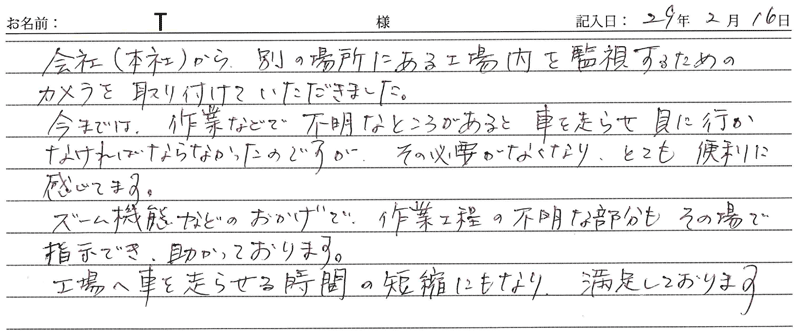 お名前： T 様 記入日：29年2月16日
会社（本社）から、別の場所にある工場内を監視するための
カメラを取り付けていただきました。
今までは、作業などで不明なところがあると車を走らせ見に行か
なければならなかったのですが、その必要がなくなり、とても便利に
感じてます。
ズーム機能などのおかげで、作業工程の不明な部分もその場で
指示でき、助かっております。
工場へ車を走らせる時間の短縮にもなり、満足しております